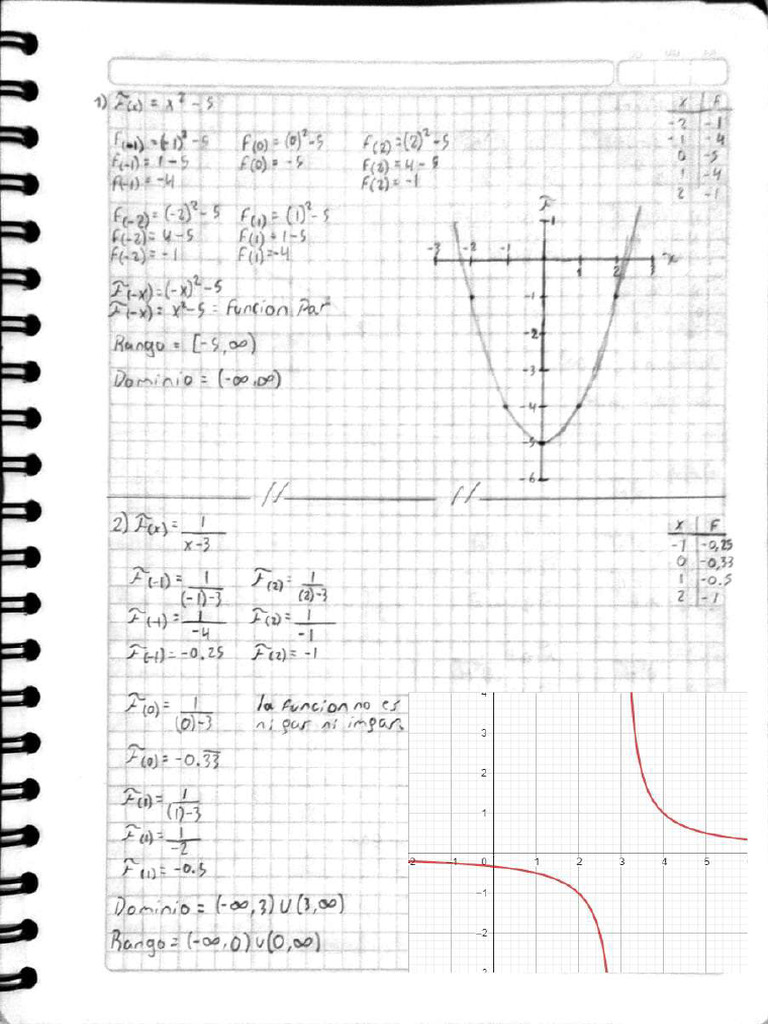 1) F(x) = x² - 5
F(-1) = (-1)² - 5
F(-1) = 1 - 5
F(-1) = -4
F(0) = (0)² - 5
F(0) = -5
F(2) = (2)² - 5
F(2) = 4 - 5
F(2) = -1
x | F
-2 | -1
-1 | -4
0 | -5
1 | -4
2 | -1
F(-2) = (-2)² - 5
F(-2) = 4 - 5
F(-2) = -1
F(1) = (1)² - 5
F(1) = 1 - 5
F(1) = -4
F(-x) = (-x)² - 5
F(-x) = x² - 5 = Funcion Par
Rango = [-5, ∞)
Dominio = (-∞, ∞)
F
1
-3 -2 -1 1 2 3 x
-1
-2
-3
-4
-5
-6
2) F(x) = 1/(x-3)
x | F
-1 | -0,25
0 | -0,33
1 | -0.5
2 | -1
F(-1) = 1/((-1)-3)
F(-1) = 1/-4
F(-1) = -0.25
F(2) = 1/((2)-3)
F(2) = 1/-1
F(2) = -1
F(0) = 1/((0)-3)
F(0) = -0.33
la funcion no es
ni par ni impar.
F(1) = 1/((1)-3)
F(1) = 1/-2
F(1) = -0.5
Dominio = (-∞, 3) U (3, ∞)
Rango = (-∞, 0) U (0, ∞)
4
3
2
1
-2 -1 0 1 2 3 4 5
-1
-2
-3